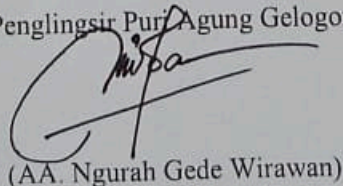 Penglingsir Puri Agung Gelogo
(AA. Ngurah Gede Wirawan)